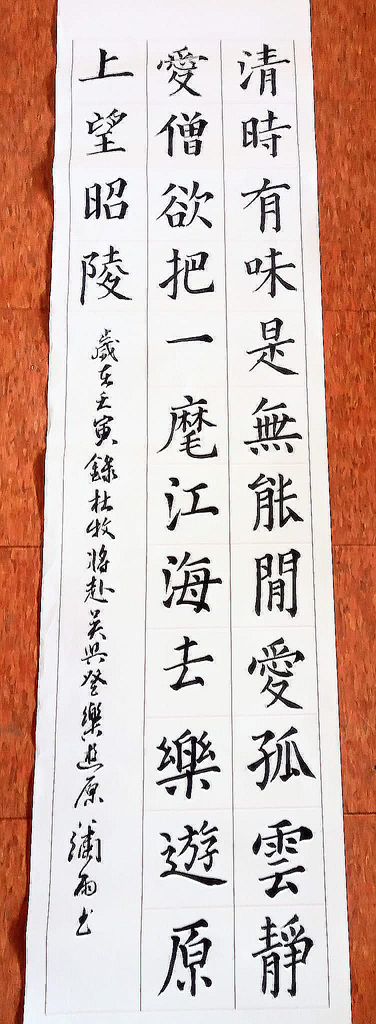 清時有味是無能閒愛孤雲靜
愛僧欲把一麾江海去樂遊原
上望昭陵
歲在壬寅錄杜牧將赴吳興登樂遊原 瀰雨書